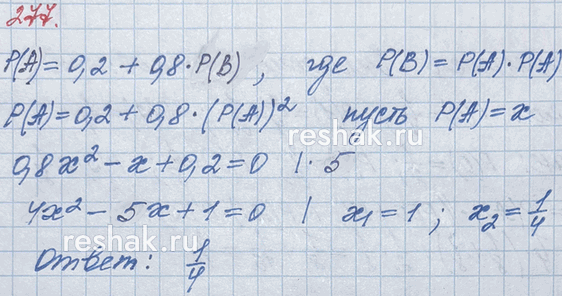 277.
P(A)=0,2 + 0,8·P(B), где P(B)=P(A)·P(A)
P(A)=0,2+0,8·(P(A))² пусть P(A)=x
reshak.ru
0,8x²-x+0,2=0 |·5
4x²-5x+1=0 | x₁=1; x₂=1/4
reshak.ru
Ответ: 1/4